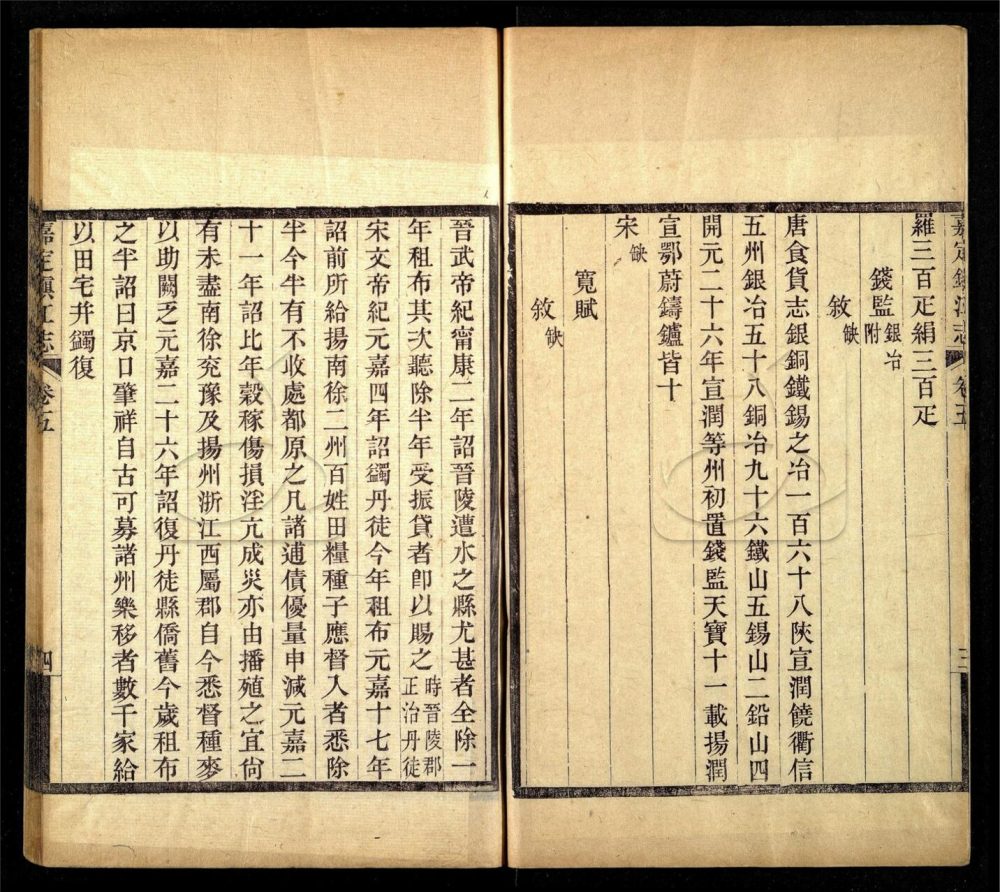 嘉定鎮江志 卷五
羅三百疋絹三百疋
錢監銀冶附
敘缺
唐食貨志銀銅鐵錫之冶一百六十八陝宣潤饒衢信
五州銀冶五十八銅冶九十六鐵山五錫山二鉛山四
開元二十六年宣潤等州初置錢監天寶十一載揚潤
宣鄂蔚鑄鑪皆十
宋缺
寬賦
敘缺
晉武帝紀甯康二年詔晉陵遭水之縣尤甚者全除一
年租布其次聽除半年受振貸者卽以賜之時晉陵郡正治丹徒
宋文帝紀元嘉四年詔蠲丹徒今年租布元嘉十七年
詔前所給揚南徐二州百姓田糧種子應督入者悉除
半今半有不收處都原之凡諸逋債優量申減元嘉二
十一年詔比年穀稼傷損淫亢成災亦由播殖之宜尙
有未盡南徐兗豫及揚州浙江西屬郡自今悉督種麥
以助闕乏元嘉二十六年詔復丹徒縣僑舊今歲租布
之半詔曰京口肇祥自古可募諸州樂移者數千家給
以田宅幷蠲復
嘉定鎮江志 卷五 四